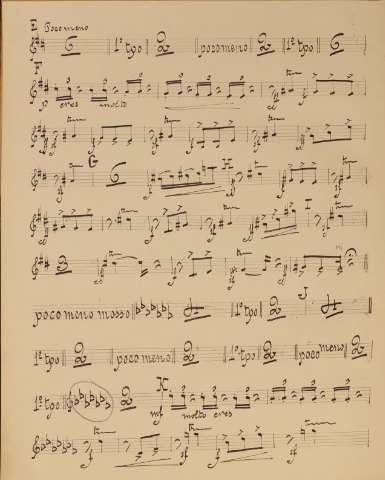 E Poco meno
6 1º tpo 2 poco meno 2 1º tpo 6
F
p cres molto
G
6 H
I
3
poco meno mosso 4 1º tpo 2 J 4
1º tpo 2 poco meno 2 1º tpo 2 poco meno 2
1º tpo 2 K
mf molto cres
f sf f sf